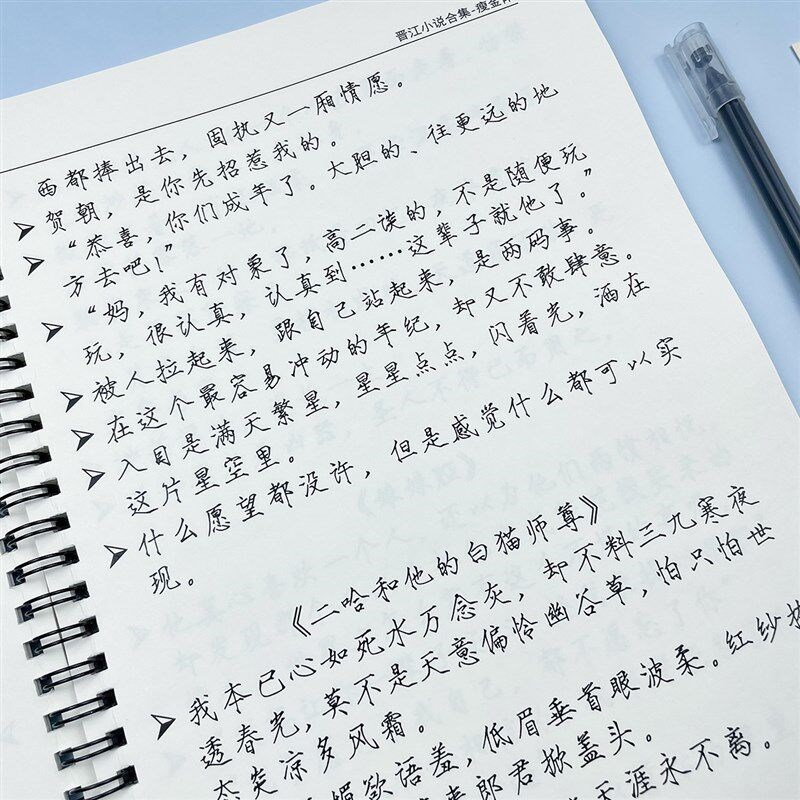 晋江小说合集-瘦金体
西都捧出去，固执又一厢情愿。
贺朝，是你先招惹我的。
“恭喜，你们成年了。大胆的、往更远的地
方去吧！”
“妈，我有对象了，高二谈的，不是随便玩
玩，很认真，认真到……这辈子就他了。”
被人拉起来，跟自己站起来，是两码事。
在这个最容易冲动的年纪，却又不敢肆意。
入目是满天繁星，星星点点，闪着光，洒在
这片星空里。
什么愿望都没许，但是感觉什么都可以实
现。
《二哈和他的白猫师尊》
我本已心如死水万念灰，却不料三九寒夜
透春光，莫不是天意偏怜幽谷草，怕只怕世
态炎凉多风霜。
欲语羞，低眉垂首眼波柔。红纱
郎君掀盖头。
天涯永不离。